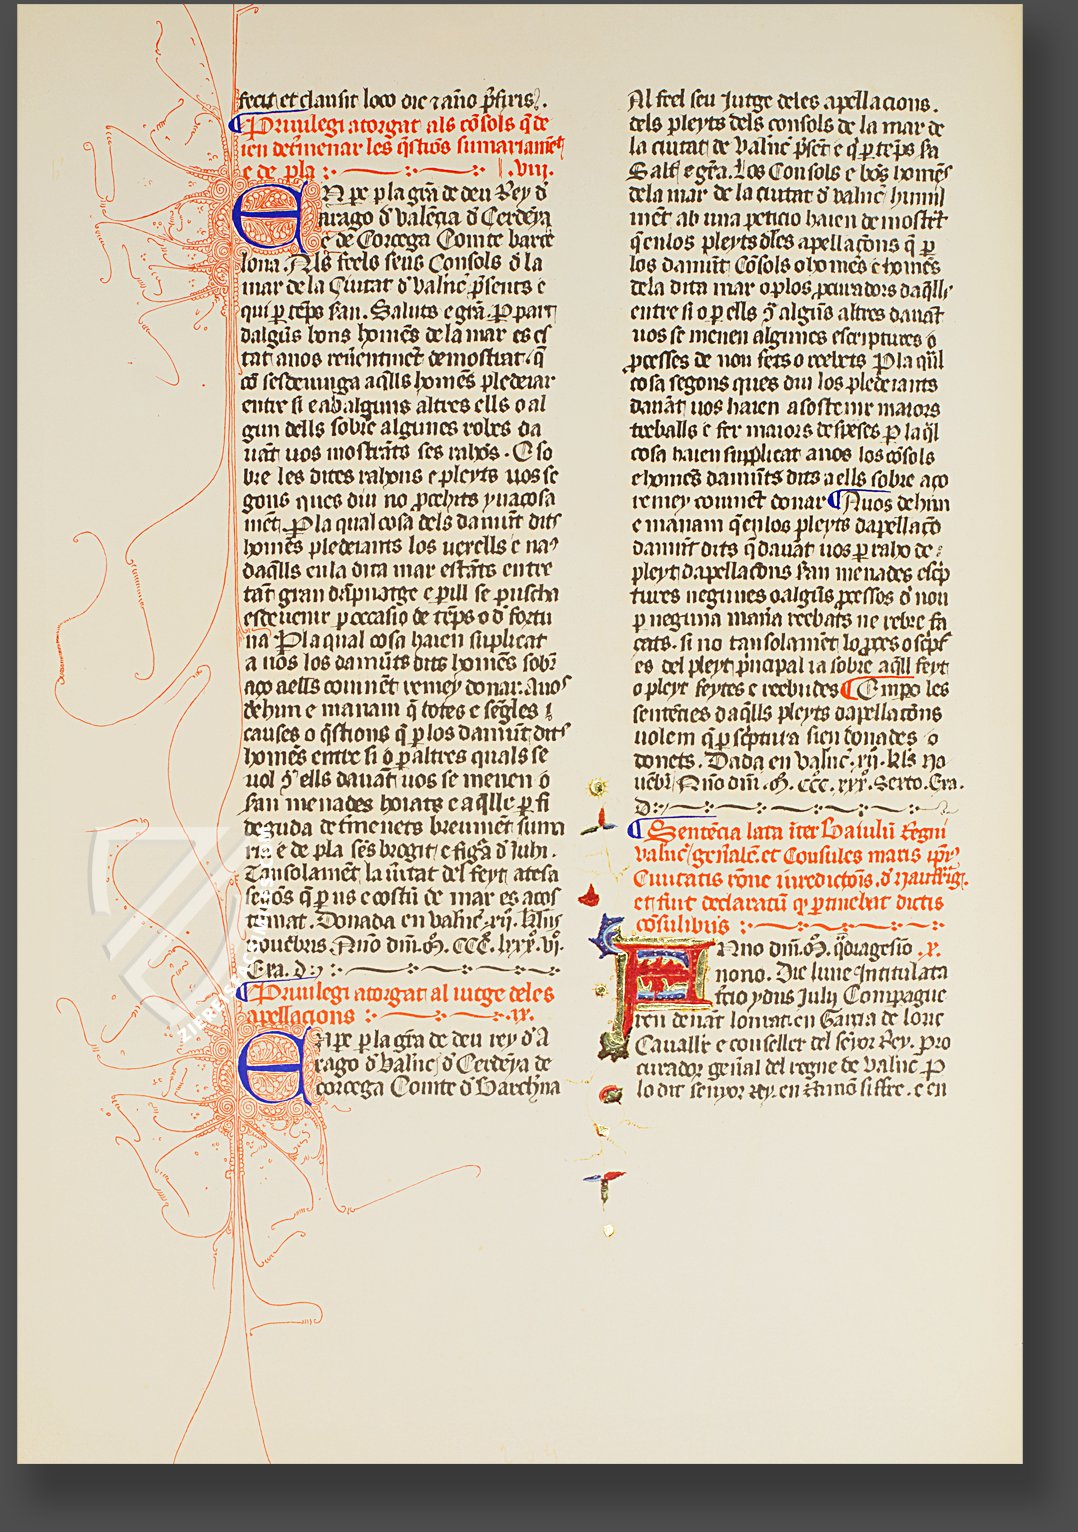 fecit et clausit loco die ⁊ año p̃firis.
Priuilegi atorgat als cõsols q̃ de
ien det̃menar les q̃stiõs sumariamẽt
e de pla .viii.
EN pe pla grã de deu Rey d̃
arago d̃ valẽcia d̃ Cerdẽya
e de Corcega Comte barce
lona. Als feels seus Consols d̃ la
mar de la Ciutat d̃ valñc̃ p̃sents e
qui p̱ tẽps sran. Saluts e grã. P̱ part
dalgũs bons homẽs de la mar es es
tat anos reũentmẽt demostrat. q̃
cõ sesdeuinga aq̃lls homẽs pledeiar
entre si e ab alguns altres ells o al
gun dells sobre algunes robes da
uãt uos mostrãts ses rahõs. E so
bre les dites rahons e pleyts uos se
gons ques diu no p̱cehits yuacosa
mẽt. P̱ la qual cosa dels damũt dits
homẽs pledeiants los uexells e naus
daq̃lls en la dita mar estãts entre
tãt gran dãpnatge e p̱ill se p̱uscha
esdeuenir p̱ occasio de tẽps o d̃ fortu
na P̱ la qual cosa hauen suplicat
a nos los damũts dits homẽs sobr̃
aço aells couinẽt remey donar. Auos
dehim e manam q̃ totes e sẽgles
causes o q̃stions q̃ p̱ los damũt dits
homẽs entre si o p̱ altres quals se
uol q̃ ells dauãt uos se menen o
sran menades hoiats e aq̃lls p̱ fi
deguda det̃menets breumẽt suma
ria e de pla sẽs brogit e figã d̃ Juhi.
Tansolamẽt la ũitat del feyt atesa
segõs q̃ p̱ us e costũ de mar es acos
tumat. Donada en valñc̃. xii. kłns
nouẽbris. Anno dñi. M. CCC. xxx. vi.
Era. d:
Priuilegi atorgat al iutge deles
apellacions .ix.
EN pe p̱ la grã de deu rey d̃ A
rago d̃ Valñc̃ d̃ Cerdẽya de
corcega Comte d̃ Barchña
Al feel seu Jutge deles apellacions.
dels pleyts dels consols de la mar de
la ciutat de Valñc̃ p̃sẽt e q̃ p̱ tẽps sa
Salt̃ e grã. Los Consols e bõs homẽs
dela mar de la ciutat d̃ valñc̃ humil
mẽt ab una peticio hauen demostrat
q̃ enlos pleyts dl̃es apellaciõs q̃ p̱
los damũt Cõsols o bomẽs e homẽs
dela dita mar o p̱ los p̱curadors daq̃lls
entre si o p̱ ells q̃ algũs altres dauãt
uos se menen algunes escriptures o
p̱cesses de nou fets o reebets P̱ la q̃l
cosa segons ques diu los pledeiants
dauãt uos hauen a sostenir maiors
treballs e fer maiors despeses P̱ la q̃l
cosa hauen supplicat anos los cõsols
e homẽs damũts dits aells sobre aço
remey couinẽt donar Auos dehim
e manam q̃ enlos pleyts dapellaciõ
damũt dits q̃ dauãt uos p̱ raho de
pleyt dapellacions sran menades esc̃p
tures negunes o algũs p̱cessos d̃ nou
p̱ neguna mãia reebats ne rebre fa
çats. si no tansolamẽt lo p̱ces o sc̃pt̃
es del pleyt p̃ncipal ia sobre aq̃ll feyt
o pleyt feytes e reebudes Empo les
sentẽcies daq̃lls pleyts dapellaciõns
uolem q̃ p̱ sc̃ptura sien donades o
donets. Dada en valñc̃. xii. kłs no
uẽbr̃ Anno dñi. M. CCC. xxx. Sexto. Era.
d:
Sentẽcia lata ĩter Baiulũ Regni
valñc̃ geñalẽ. et Consules maris ip̃i9
Ciuitatis rõne iũredictõis. d̃ naufrag.
et fuit declaratũ q̱ p̱tinebat dictis
cõsulibus
ANno dñi. M. q̃dragesio. x.
nono. Die lune Intitulata
t̃cio ydus Julij Compague
ren denãt lonrat. en Garcia de loric
Cauallr̃ e conseller del seỹor Rey. p̱o
curador geñal del regne de Valñc̃ P̱
lo dit senyor Rey. en Ramõ siffre. e en